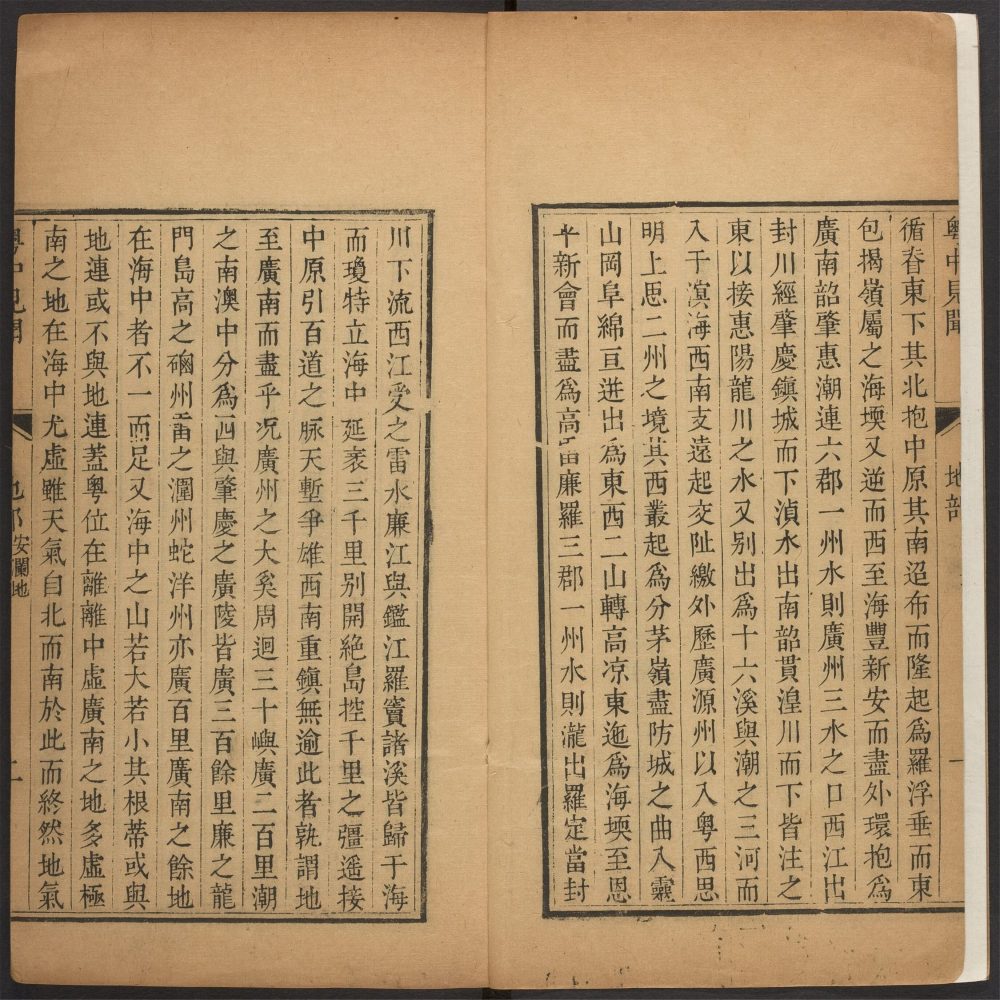 粵中見聞 地部 一
循春東下其北抱中原其南迢布而隆起爲羅浮垂而東
包揭嶺屬之海堧又逆而西至海豐新安而盡外環抱爲
廣南韶肇惠潮連六郡一州水則廣州三水之口西江出
封川經肇慶鎮城而下湞水出南韶貫湟川而下皆注之
東以接惠陽龍川之水又別出爲十六溪與潮之三河而
入于溟海西南支遠起交阯繳外歷廣源州以入粵西思
明上思二州之境其西叢起爲分茅嶺盡防城之曲入靈
山岡阜綿亘迸出爲東西二山轉高凉東迤爲海堧至恩
平新會而盡爲高雷廉羅三郡一州水則瀧出羅定當封
川下流西江受之雷水廉江與鑑江羅竇諸溪皆歸于海
而瓊特立海中延袤三千里别開絶島控千里之彊遥接
中原引百道之脉天塹爭雄西南重鎮無逾此者孰謂地
至廣南而盡乎况廣州之大奚周迴三十嶼廣二百里潮
之南澳中分爲四與肇慶之廣陵皆廣三百餘里廉之龍
門島高之硇州雷之潿州蛇洋州亦廣百里廣南之餘地
在海中者不一而足又海中之山若大若小其根蒂或與
地連或不與地連蓋粵位在離離中虛廣南之地多虛極
南之地在海中尤虛雖天氣自北而南於此而終然地氣
粵中見聞 地部 安瀾地 二